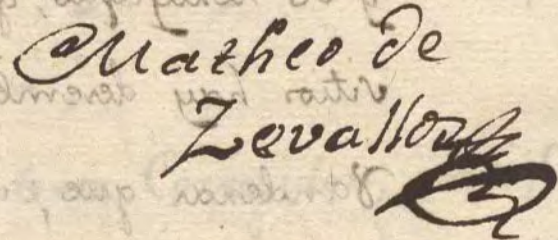 Matheo de
Zevallos